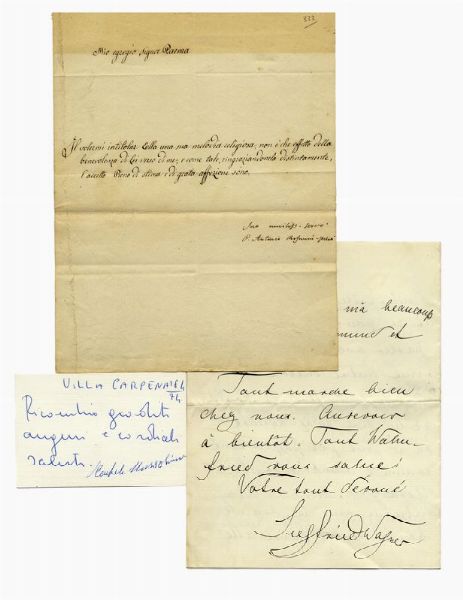 333
Mio egregio signor Parma
Il volermi intitolar Ella una sua melodia religiosa, non è che effetto della
benevolenza di Lei verso di me; e come tale, ringraziandonela distintamente,
l'accetto. Pieno di stima e di grata affezione sono.
Suo umiliss. servo
P. Antonio
m'a beaucoup
et
Tout marche bien
chez nous. Aurevoir
à bientôt. Tout Wahn-
fried vous salue!
Votre tout dévoué
Siegfried Wagner
VILLA CARPENA
74
Ricambio graditi
auguri e cordiali
saluti
Rachele Mussolini